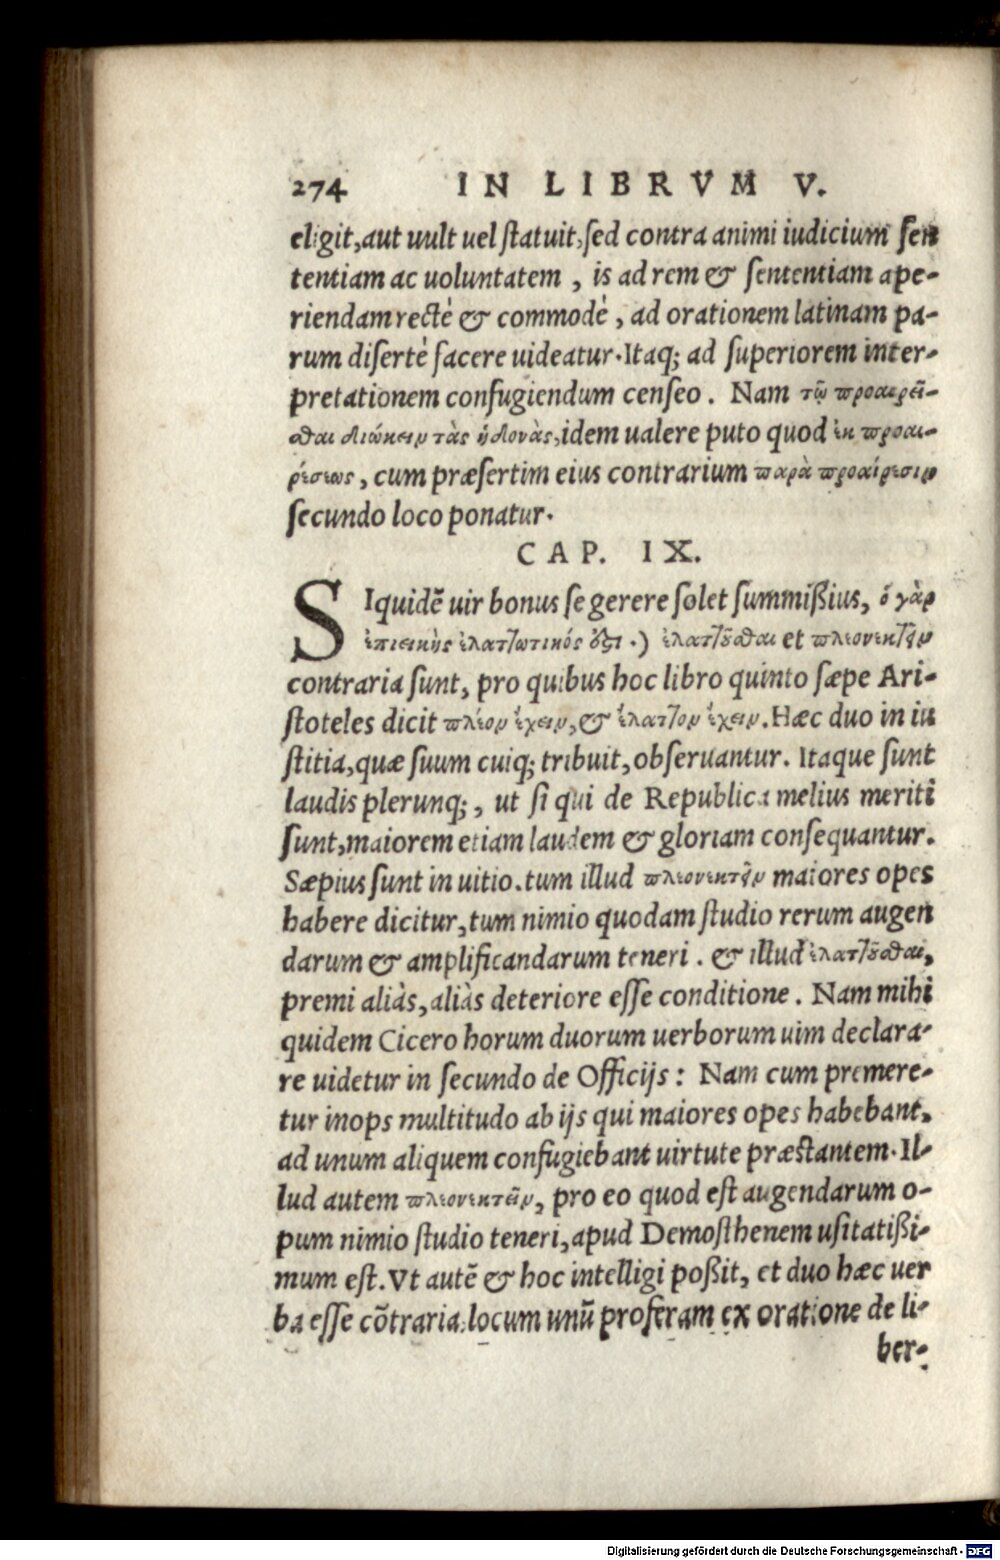 274 IN LIBRVM V.
eligit, aut uult uel ſtatuit, ſed contra animi iudicium ſen
tentiam ac uoluntatem, is ad rem & ſententiam ape-
riendam rectè & commodè, ad orationem latinam pa-
rum diſertè facere uideatur. Itaq; ad ſuperiorem inter-
pretationem confugiendum cenſeo. Nam τῷ προαιρεῖ-
σθαι διώκειν τὰς ἡδονὰς, idem ualere puto quod ἐκ προαι-
ρέσεως, cum præſertim eius contrarium παρὰ προαίρεσιν
ſecundo loco ponatur.
CAP. IX.
SIquidē uir bonus ſe gerere ſolet ſummißius, ὁ γὰρ
ἐπιεικὴς ἐλαττωτικός ὅστι.) ἐλαττοῦσθαι et πλεονεκτεῖν
contraria ſunt, pro quibus hoc libro quinto ſæpe Ari-
ſtoteles dicit πλέον ἔχειν, & ἔλαττον ἔχειν. Hæc duo in iu
ſtitia, quæ ſuum cuiq; tribuit, obſeruantur. Itaque ſunt
laudis plerunq;, ut ſi qui de Republica melius meriti
ſunt, maiorem etiam laudem & gloriam conſequantur.
Sæpius ſunt in uitio. tum illud πλεονεκτεῖν maiores opes
habere dicitur, tum nimio quodam ſtudio rerum augen
darum & amplificandarum teneri. & illud ἐλαττοῦσθαι,
premi aliàs, aliàs deteriore eſſe conditione. Nam mihi
quidem Cicero horum duorum uerborum uim declara-
re uidetur in ſecundo de Officijs: Nam cum premere-
tur inops multitudo ab ijs qui maiores opes habebant,
ad unum aliquem confugiebant uirtute præstantem. Il-
lud autem πλεονεκτεῖν, pro eo quod eſt augendarum o-
pum nimio ſtudio teneri, apud Demoſthenem uſitatißi-
mum eſt. Vt autē & hoc intelligi poßit, et duo hæc uer
ba eſſe cōtraria, locum unū proferam ex oratione de li-
ber-
Digitalisierung gefördert durch die Deutsche Forschungsgemeinschaft - DFG